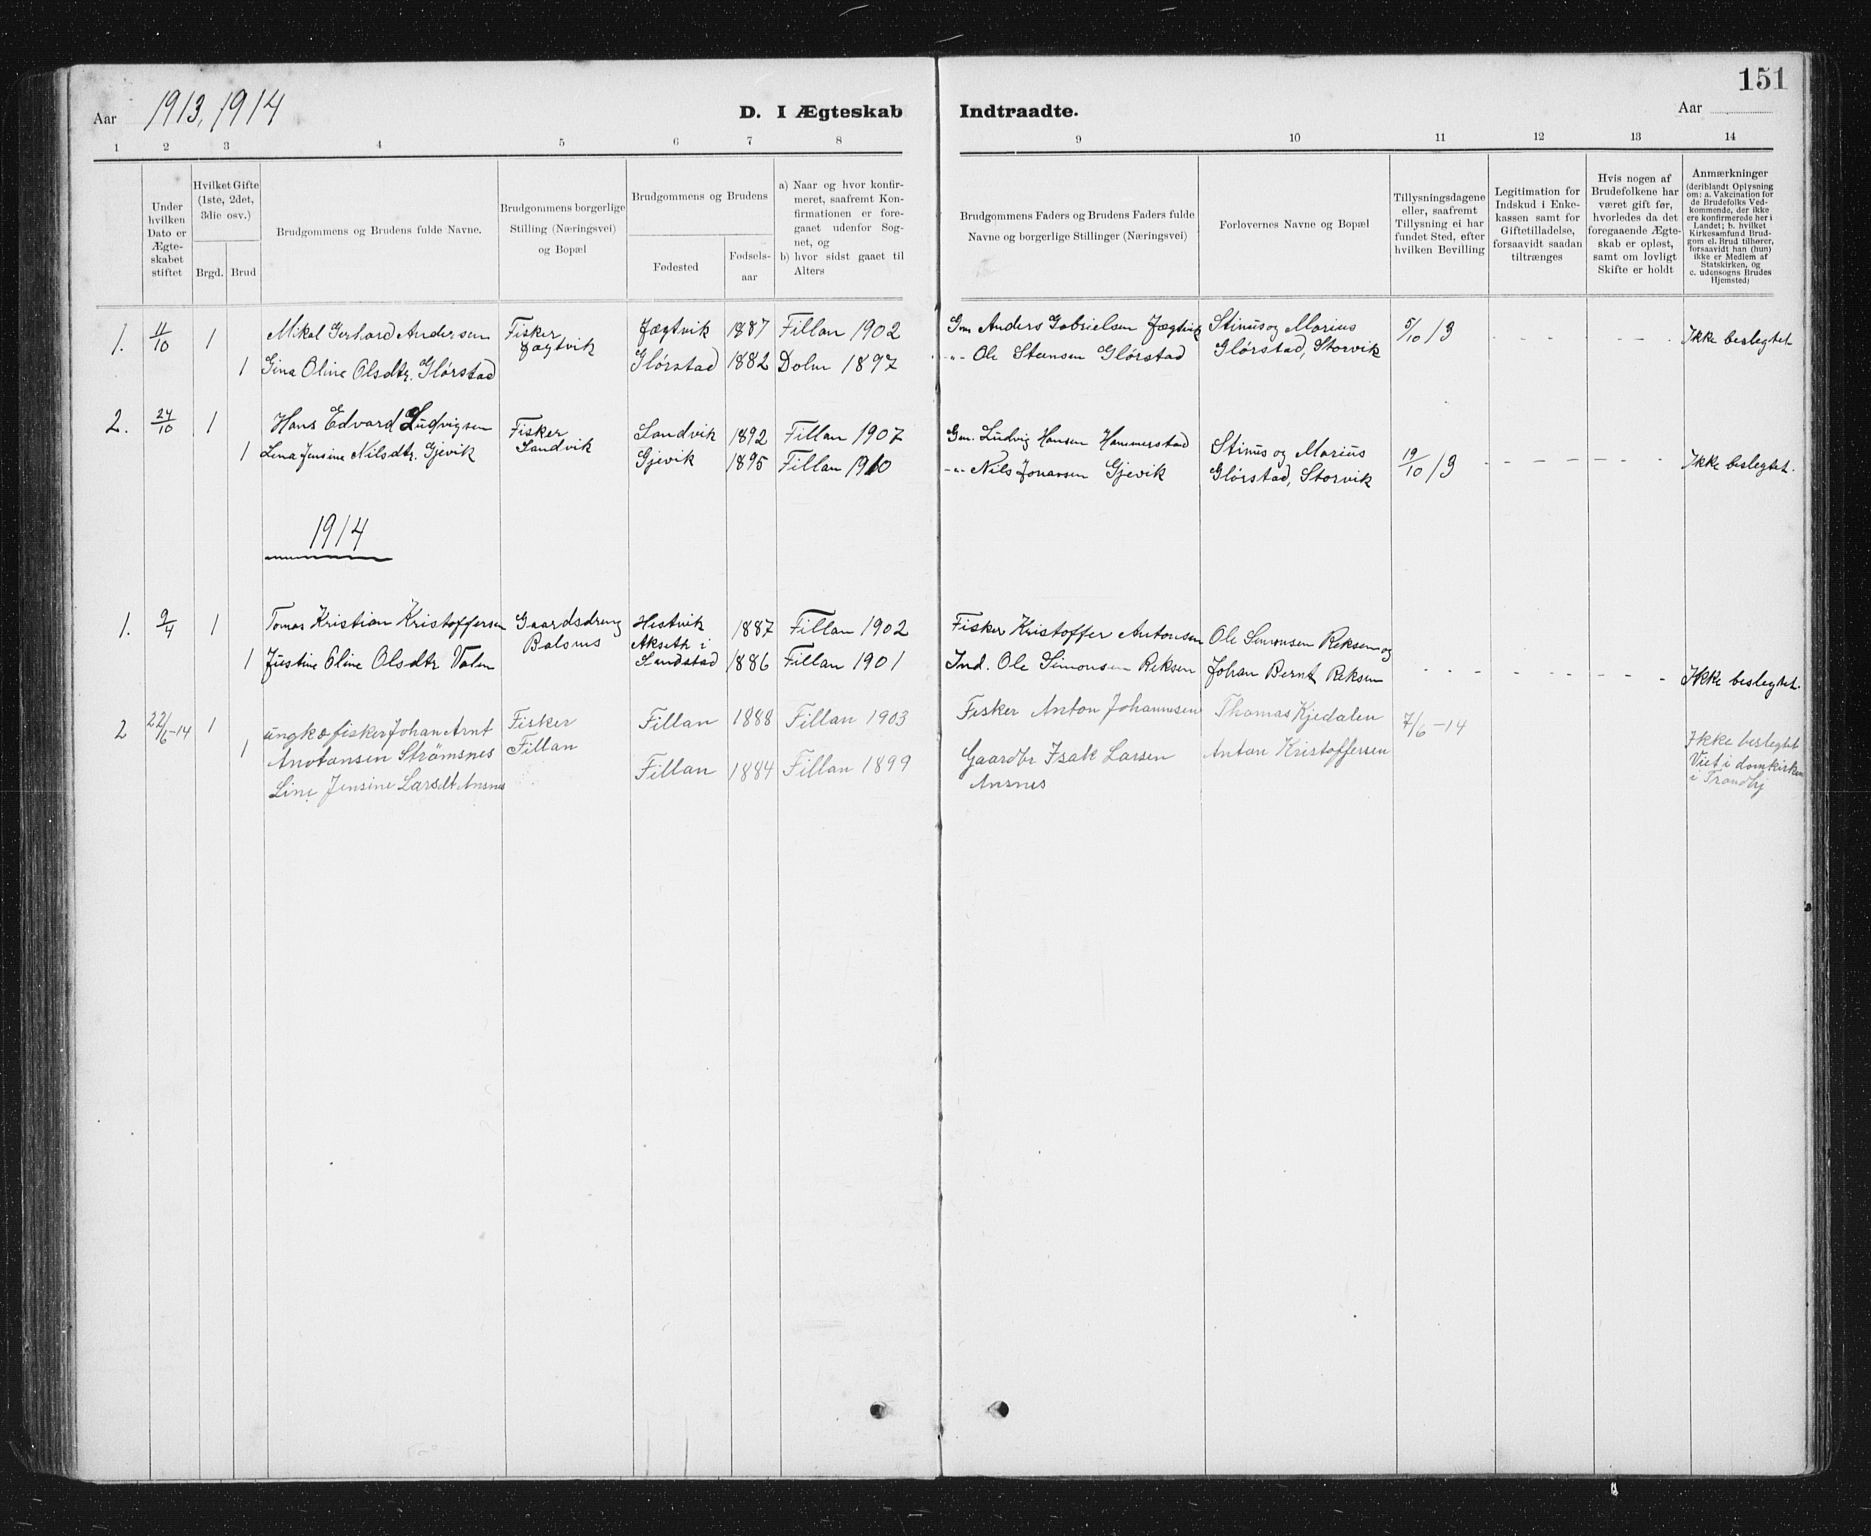 151
Aar 1913, 1914
D. I Ægteskab Indtraadte.
Aar
1 2 3 4 5 6 7 8 9 10 11 12 13 14
Under hvilken Dato er Ægteskabet stiftet
Hvilket Gifte (1ste, 2det, 3die osv.)
Brgd. Brud
Brudgommens og Brudens fulde Navne.
Brudgommens borgerlige Stilling (Næringsvei) og Bopæl
Brudgommens og Brudens
Fødested
Fødsels-aar
a) Naar og hvor konfir-
meret, saafremt Kon-
firmationen er fore-
gaaet udenfor Sog-
net, og
b) hvor sidst gaaet til
Alters
Brudgommens Faders og Brudens Faders fulde
Navne og borgerlige Stillinger (Næringsvei)
Forlovernes Navne og Bopæl
Tillysningsdagene
eller, saafremt
Tillysning ei har
fundet Sted, efter
hvilken Bevilling
Legitimation for
Indskud i Enke-
kassen samt for
Giftetilladelse,
forsaavidt saadan
tiltrænges
Hvis nogen af
Brudefolkene har
været gift før,
hvorledes da det
foregaaende Ægte-
skab er opløst,
samt om lovligt
Skifte er holdt
Anmærkninger
(deriblandt Oplysning
om: a. Vakcination for
de Brudefolks Ved-
kommende, der ikke
ere konfirmerede her i
Landet; b. hvilket
Kirkesamfund Brud-
gom el. Brud tilhører,
forsaavidt han (hun)
ikke er Medlem af
Statskirken, og
c. udensogns Brudes
Hjemsted)
1. 11/10 1 Mikal Gerhard Andersen Fisker Jægtvik Jægtvik 1887 Fillan 1902 Gm Anders Gabrielsen Jægtvik Stinus og Marius Glørstad, Storvik 5/10 13 Ikke beslegtet
1 Gina Oline Olsdtr. Glørstad Glørstad 1882 Dolm 1897 -"- Ole Steensen Glørstad
2. 24/10 1 Hans Edvard Ludvigsen Fisker Sandvik Sandvik 1892 Fillan 1907 Gm. Ludvig Hansen Hammerstad Stinus og Marius Glørstad, Storvik 19/10 13 Ikke beslegtet.
1 Lina Jensine Nilsdtr. Gjevik Gjevik 1895 Fillan 1910 -"- Nils Jonassen Gjevik
1914
1. 9/4 1 Tomas Kristian Kristoffersen Gaardsdreng Balsnes Hestvik 1887 Fillan 1902 Fisker Kristoffer Antonsen Ole Simonsen Reksen og
1 Justine Eline Olsdtr Valen Akseth i Sandstad 1886 Fillan 1901 Ind. Ole Simonsen Reksen Johan Bernt Reksen Ikke beslegtet.
2 22/6-14 1 ungk. fisker Johan Arnt Fisker Fillan 1888 Fillan 1903 Fisker Anton Johannesen Thomas Kjedalen 7/6-14
1 Antonsen Strømsnes Fillan
Line Jensine Larsdt Ansnes Fillan 1884 Fillan 1899 Gaardbr Isak Larsen Ansnes Anton Kristoffersen
Ikke beslegtet
Viet i domkirken
i Trondhj